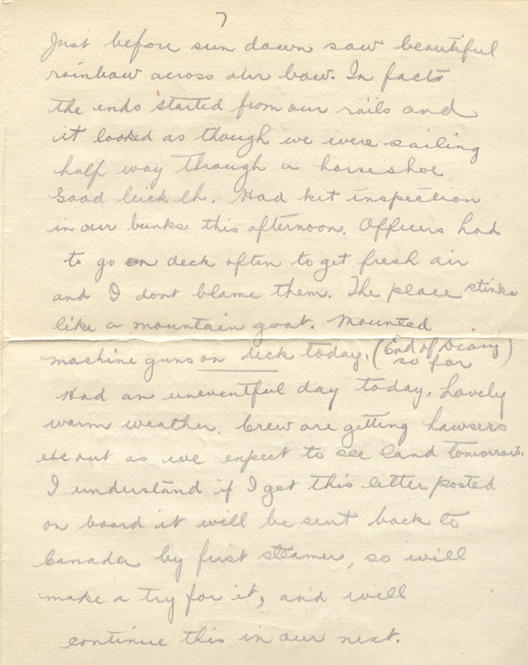 7
Just before sun down saw beautiful
rainbow across our bow. In facts
the ends started from our rails and
it looked as though we were sailing
half way through a horseshoe.
Good luck Eh. Had kit inspection
in our bunks this afternoon. Officers had
to go on deck often to get fresh air
and I dont blame them. The place stinks
like a mountain goat. Mounted
machine guns on deck today. (End of Diary so far)
Had an uneventful day today. Lovely
warm weather. Crew are getting hawsers
etc out as we expect to see land tomorrow.
I understand if I get this letter posted
on board it will be sent back to
Canada by first steamer, so will
make a try for it, and will
continue this in our next.